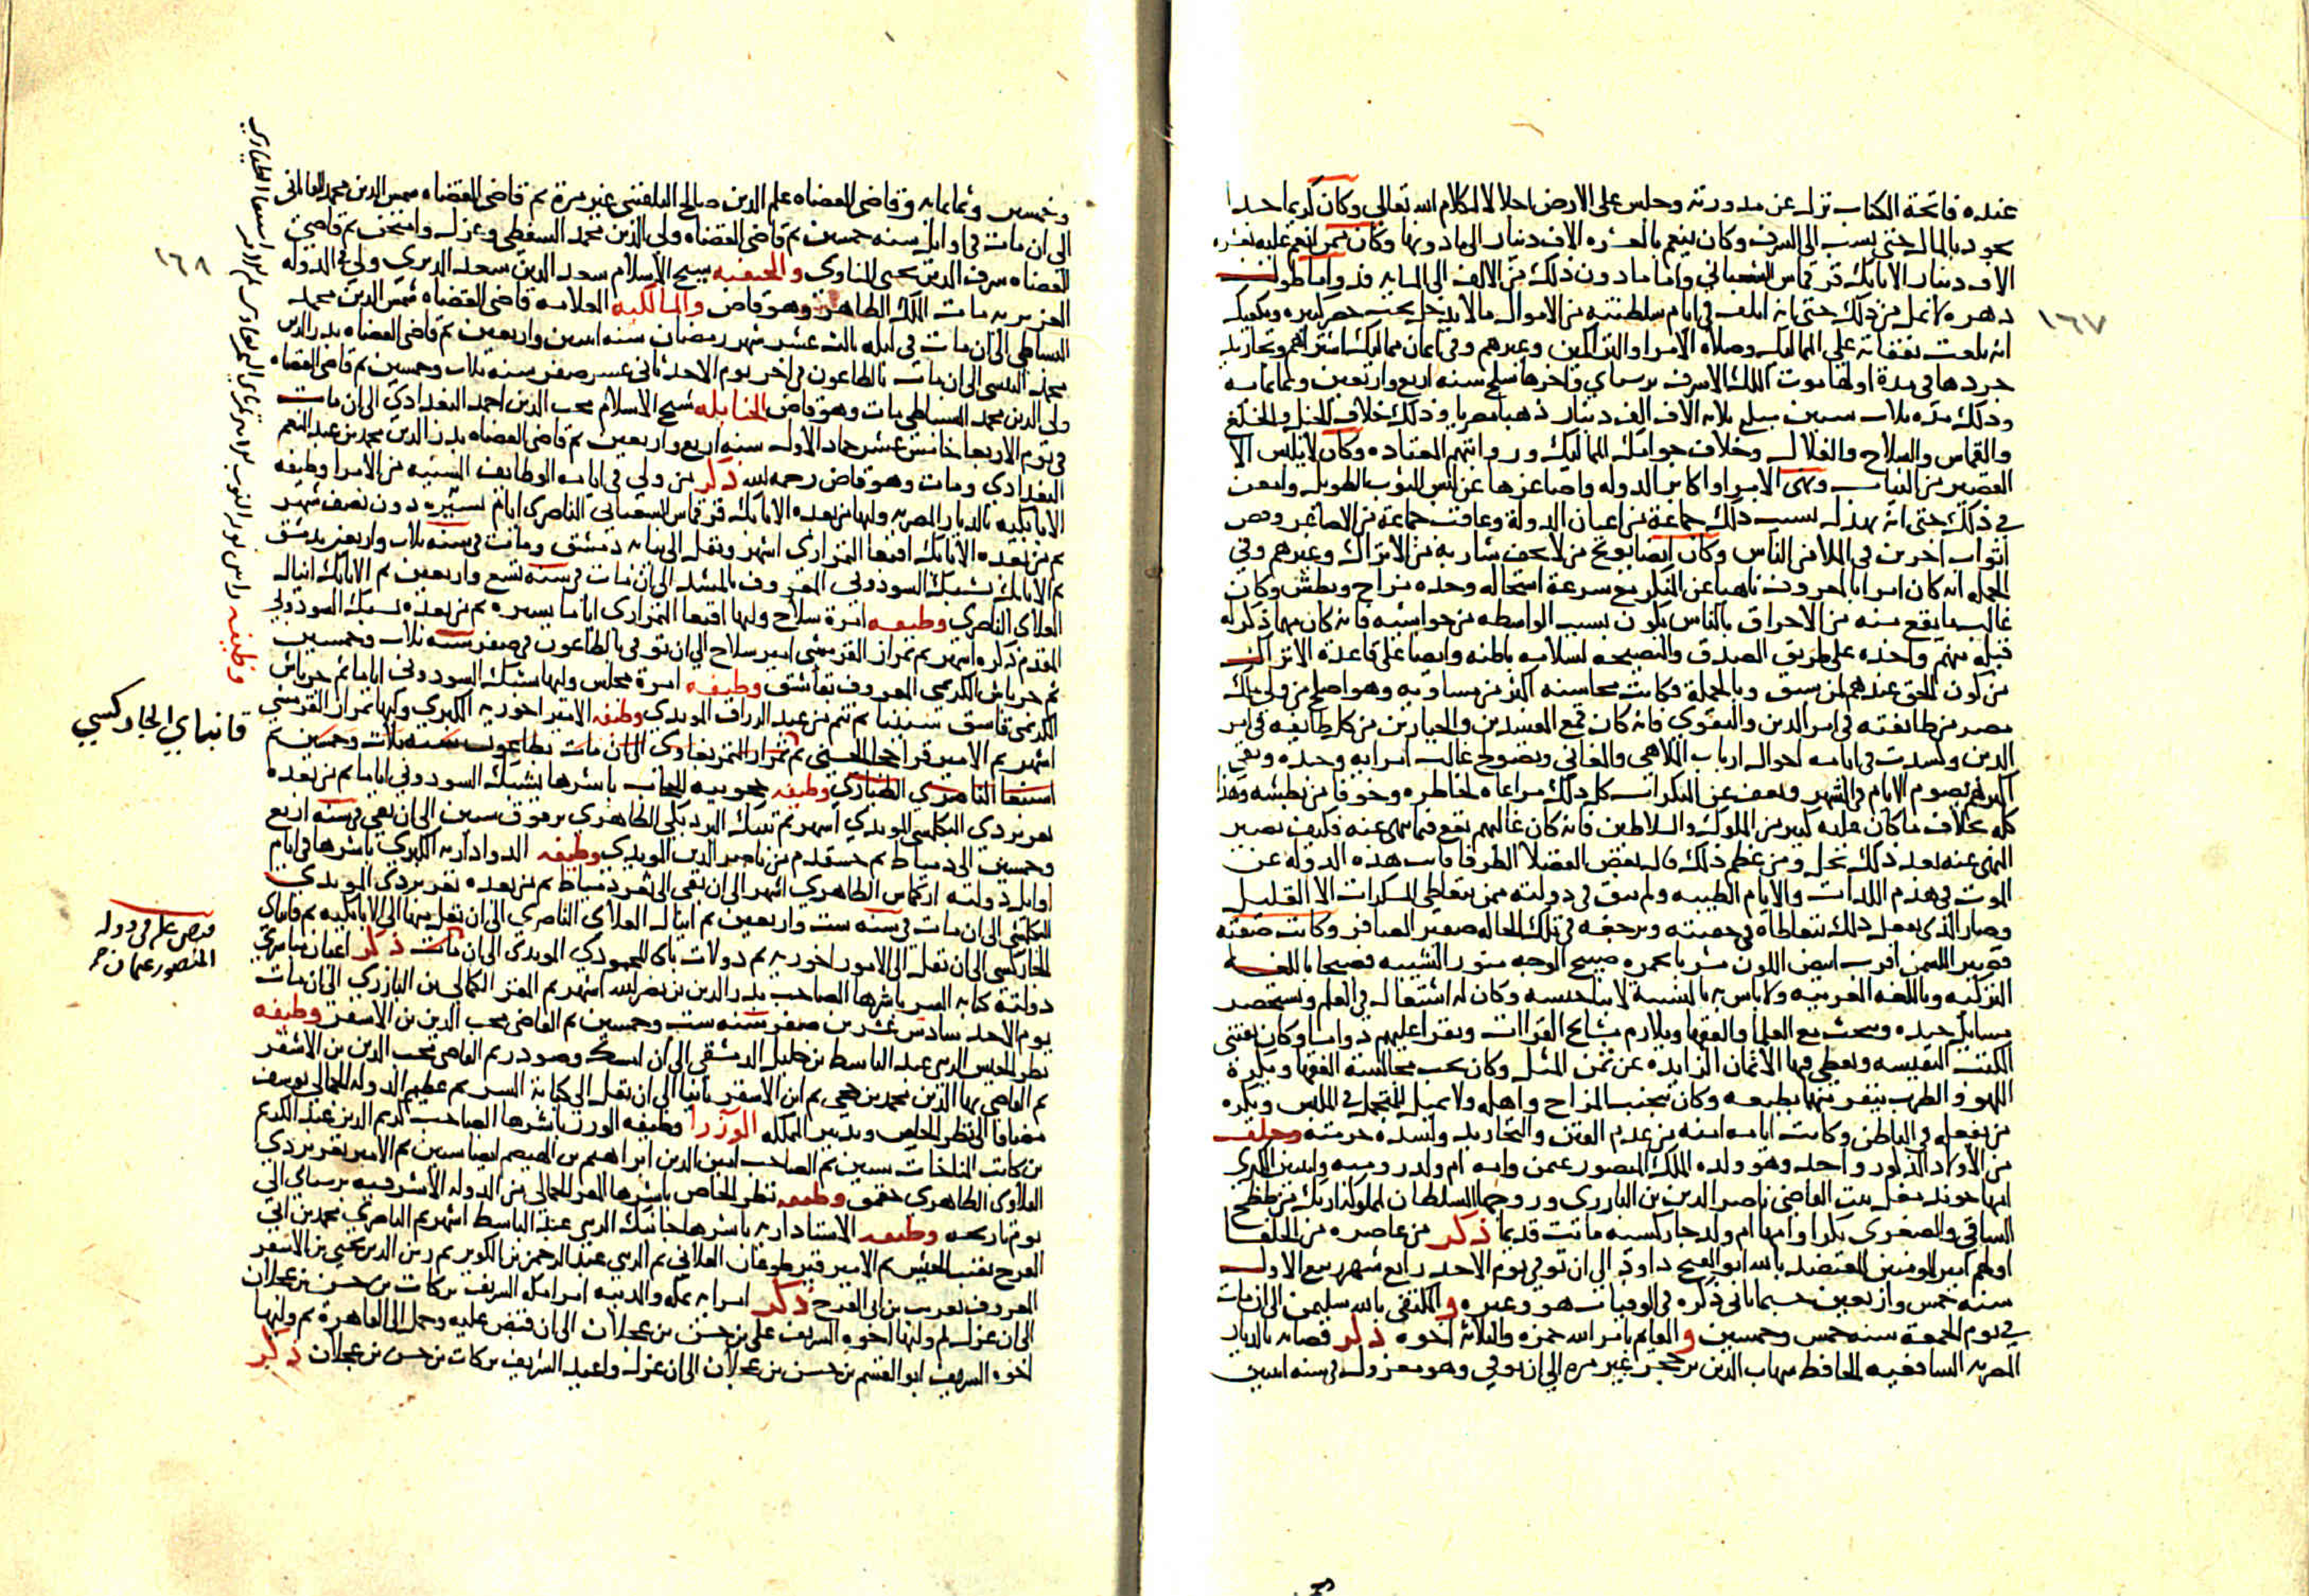 عنده فاتحة الكتاب نزل عن مدورته وجلس على الارض اجلالا لكلام الله تعالى وكان كريما جدا
يجود بالمال حتى نسب الى السرف وكان ينعم بالعشره الاف دينار الى ما دونها وكان ممن انعم عليه بعشره
الاف دينار الاتابك قرقماس الشعبانى واما ما دون ذلك من الالف الى المايه فدواما طول
دهره لا يمل من ذلك حتى انه اتلف فى ايام سلطنته من الاموال ما لا يدخل تحت حصر كثره ويكفيك
انه بلغت نفقاته على المماليك وصلاة الامرا والتراكمين وغيرهم وفى اثمان مماليك اشتراهم وتجاريد
جردها فى مدة اولها موت الملك الاشرف برسباى واخرها سلخ سنه اربع واربعين وثمانمايه
وذلك مده ثلاث سنين مبلغ ثلاثه الاف الف دينار ذهبا مصريا وذلك خلاف الخيل والخلع
والقماش والسلاح والغلال وخلاف جوامك المماليك ورواتبهم المعتاده وكان لا يلبس الا
القصير من الثياب ونهى الامرا واكابر الدوله واصاغرها عن لبس الثوب الطويل وامعن
فى ذلك حتى انه بهذل بسبب ذلك جماعة من اعيان الدولة وعاقب جماعة من الاصاغر وقص
اثواب اخرين فى الملا من الناس وكان ايضا يوبخ من لا يحف شاربه من الاتراك وغيرهم وفى
الجمله انه كان امرا بالمعروف ناهيا عن المنكر مع سرعة استحاله وحده مزاج وبطش وكان
غالب ما يقع منه من الاخراق بالناس يكون بسبب الواسطه من حواشيه فانه كان مهما ذكر له
قبله منهم واخذه على طريق الصدق والنصيحه لسلامه باطنه وايضا على قاعدة الاتراك
من كون الحق عندهم لمن سبق وبالجملة فكانت محاسنه اكثر من مساويه وهو اصلح من ولى ملك
مصر من طائفته فى امر الدين والتقوى فانه كان قمع المفسدين والجبارين من كل طايفه فى امر
الدين وكسدت فى ايامه احوال ارباب الملاهى والمغانى وتصولح غالب امرايه وجنده وبقى
اكثرهم يصوم الايام فى الشهر ويعف عن المنكرات كل ذلك مراعاه لخاطره وخوفا من بطشه وهذا
كله بخلاف ما كان عليه كثير من الملوك والسلاطين فانه كان غالبهم يقع فيما نهى عنه فكيف يصير
النهى عنه بعد ذلك محل ومن عظم ذلك قال بعض الفضلا الظرفا نابت هذه الدوله عن
الموت فى هذم اللذات والايام الطيبه ولم يبق فى دولته ممن يتعاطى المسكرات الا القليل
وصار الذى يفعل ذلك يتعاطاه فى خفيته ويرجفه فى تلك الحاله صفير الصافر وكانت صفته
قصير اللسمن اقرب ابيض اللون مشربا بحمره صبيح الوجه منور الشيبه فصيحا باللغه
التركيه وباللغه العربيه ولا باس به بالنسبة لابنا جنسه وكان له اشتغال فى العلم ويستحضر
مسايل جيده ويبحث مع العلما والفقها ويلازم مشايخ القراات ويقرا عليهم دواما وكان يقتنى
الكتب النفيسه ويعطى فيها الاثمان الزايده عن ثمن المثل وكان يحب مجالسة الفقها ويكره
اللهو والطرب ينفر منهما بطبعه وكان يجتنب المزاح واهله ولا يميل للتجمل فى الملبس ويكره
من يفعله فى الباطن وكانت ايامه امنه من عدم الفتن والتجاريد ولشده حرمته وخلف
من الاولاد الذكور واحد وهو ولده الملك المنصور عثمن وامه ام ولد روميه وابنتين الكبرى
امها خوند مغل بنت القاضى ناصر الدين بن البارزى وزوجها السلطان لمملوكه ازبك من ططخ
الساقى والصغرى بكرا وامها ام ولد جاركسيه ماتت قديما ذكر من عاصره من الخلفا
اولهم امير المومنين المعتضد بالله ابو الفتح داود الى ان توفى يوم الاحد رابع شهر ربيع الاول
سنه خمس واربعين حسبما ياتى ذكره فى الوفيات هو وغيره والمستكفى بالله سليمن الى ان مات
فى يوم الجمعة سنه خمس وخمسين والقايم بامر الله حمزه والثلاثه اخوه ذكر قضاته بالديار
المصريه الشافعيه الحافظ شهاب الدين بن حجر غير مره الى ان توفى وهو معزول فى سنه اثنين
١٦٧
وخمسين وثمانمايه وقاضى القضاه علم الدين صالح البلقينى غير مرة ثم قاضى القضاه شمس الدين محمد القاياتى
الى ان مات فى اوايل سنه خمسين ثم قاضى القضاه ولى الدين محمد السفطى وعزل وامتحن ثم قاضى
القضاه شرف الدين يحيى المناوى والحنفيه شيخ الاسلام سعد الدين سعد الديرى ولى فى الدوله
العزيزيه مات الملك الظاهر وهو قاض والمالكيه العلامه قاضى القضاه شمس الدين محمد
البساطى الى ان مات فى ليله ثالث عشر شهر رمضان سنه اثنين واربعين ثم قاضى القضاه بدر الدين
محمد التنسى الى ان مات بالطاعون فى اخر يوم الاحد ثانى عشر صفر سنه ثلاث وخمسين ثم قاضى القضاه
ولى الدين محمد السنباطى مات وهو قاض الحنابله شيخ الاسلام محب الدين احمد البغدادى الى ان مات
فى يوم الاربعا خامس عشر جماد الاول سنه اربع واربعين ثم قاضى القضاه بدر الدين محمد بن عبد المنعم
البغدادى ومات وهو قاض رحمه الله ذكر من ولى فى ايامه الوظايف السنيه من الامرا وظيفه
الاتابكيه بالديار المصريه وليها من بعده الاتابك قرقماس الشعبانى الناصرى ايام يسيره دون نصف شهر
ثم من بعده الاتابك اقبغا التمرازى اشهر ونقل الى نيابه دمشق ومات فى سنه ثلاث واربعين بدمشق
ثم الاتابك يشبك السودونى المعروف بالمشد الى ان مات فى سنه تسع واربعين ثم الاتابك اينال
العلاى الناصرى وظيفه امرة سلاح وليها اقبغا التمرازى اياما يسيره ثم من بعده يشبك السودونى
المقدم ذكره اشهر ثم تمراز القرمشى امير سلاح الى ان توفى بالطاعون فى صفر سنه ثلاث وخمسين
ثم جرباش الكريمى المعروف بقاشق وظيفه امرة مجلس وليها يشبك السودونى اياما ثم جرباش
الكريمى قاشق سنينا ثم تنم من عبد الرزاق المويدى وظيفه الامير اخوريه الكبرى وليها تمراز القرمشى
اشهر ثم الامير قراخجا الحسنى ثم تمراز التمربغاوى الى ان مات بطاعون سنه ثلاث وخمسين ثم
اسنبغا الناصرى الطيارى وظيفه حجوبيه الحجاب باشرها يشبك السودونى اياما ثم من بعده
تغر بردى البكلمشى المويدى اشهر ثم تنبك البردبكى الظاهرى برقوق سنين الى ان نفى فى سنه اربع
وخمسين الى دمياط ثم خشقدم من ناصر الدين المويدى وظيفه الدواداريه الكبرى باشرها فى ايام
اوايل دولته اركماس الظاهرى اشهر الى ان نفى الى ثغر دمياط ثم من بعده تغر بردى المويدى
البكلمشى الى ان مات فى سنه ست واربعين ثم اينال العلاى الناصرى الى ان نقل منها الى الاتابكيه ثم قانباى
الجاركسى الى ان نقل الى الامير اخوريه ثم دولات باى المحمودى المويدى الى ان مات ذكر اعيان مباشرى
دولته كتابه السر باشرها الصاحب بدر الدين بن نصر الله اشهر ثم المقر الكمالى بن البارزى الى ان مات
يوم الاحد سادس عشرين صفر سنه ست وخمسين ثم القاضى محب الدين بن الاشقر وظيفه
نظر الجيش الزينى عبد الباسط بن خليل الدمشقى الى ان امسك وصودر ثم القاضى محب الدين بن الاشقر
ثم القاضى بها الدين محمد بن حجى ثم ابن الاشقر ثانيا الى ان نقل الى كتابه السر ثم عظيم الدوله الجمالى يوسف
مضافا الى نظر الخاص وتدبير المملكه الوزرا وظيفه الوزر باشرها الصاحب كريم الدين عبد الكريم
بن كاتب المناخات سنين ثم الصاحب امين الدين ابراهيم بن الهيصم ايضا سنين ثم الامير تغر بردى
القلاوى الظاهرى جقمق وظيفه نظر الخاص باشرها المقر الجمالى من الدوله الاشرفيه برسباى الى
يوم تاريخه وظيفه الاستاداريه باشرها جانبك الزينى عبد الباسط اشهر ثم الناصرى محمد بن ابى
الفرج نقيب الجيش ثم الامير قيز طوغان العلانى ثم الزينى عبد الرحمن بن الكويز ثم زين الدين يحيى بن الاشقر
المعروف بقريب بن ابى الفرج ذكر امرايه بمكه والمدينه امرا مكه الشريف بركات بن حسن بن عجلان
الى ان عزل ثم وليها اخوه الشريف على بن حسن بن عجلان الى ان قبض عليه وحمل الى القاهرة ثم وليها
اخوه الشريف ابو القسم بن حسن بن عجلان الى ان عزل واعيد الشريف بركات بن حسن بن عجلان ذكر
١٦٨
وظيفه راس نوبه النوب
قانباى الجاركسى
قبض عليه فى دوله
المنصور عثمان